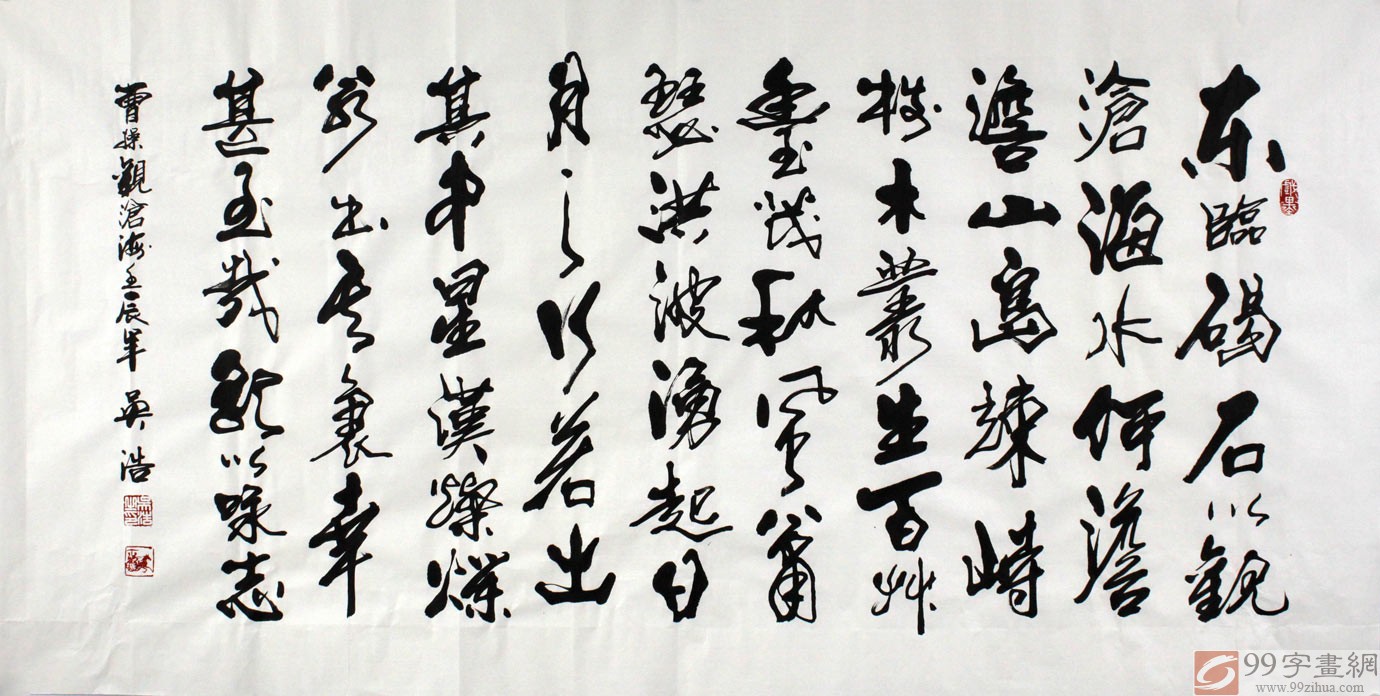 东臨碣石以觀
滄海水何澹
澹山島竦峙
樹木叢生百艸
豐茂秋風蕭
瑟洪波湧起日
月之行若出
其中星漢燦爛
若出其裏幸
甚至哉歌以咏志
曹操觀滄海壬辰年 吳浩
99字畫網
www.99zihua.com